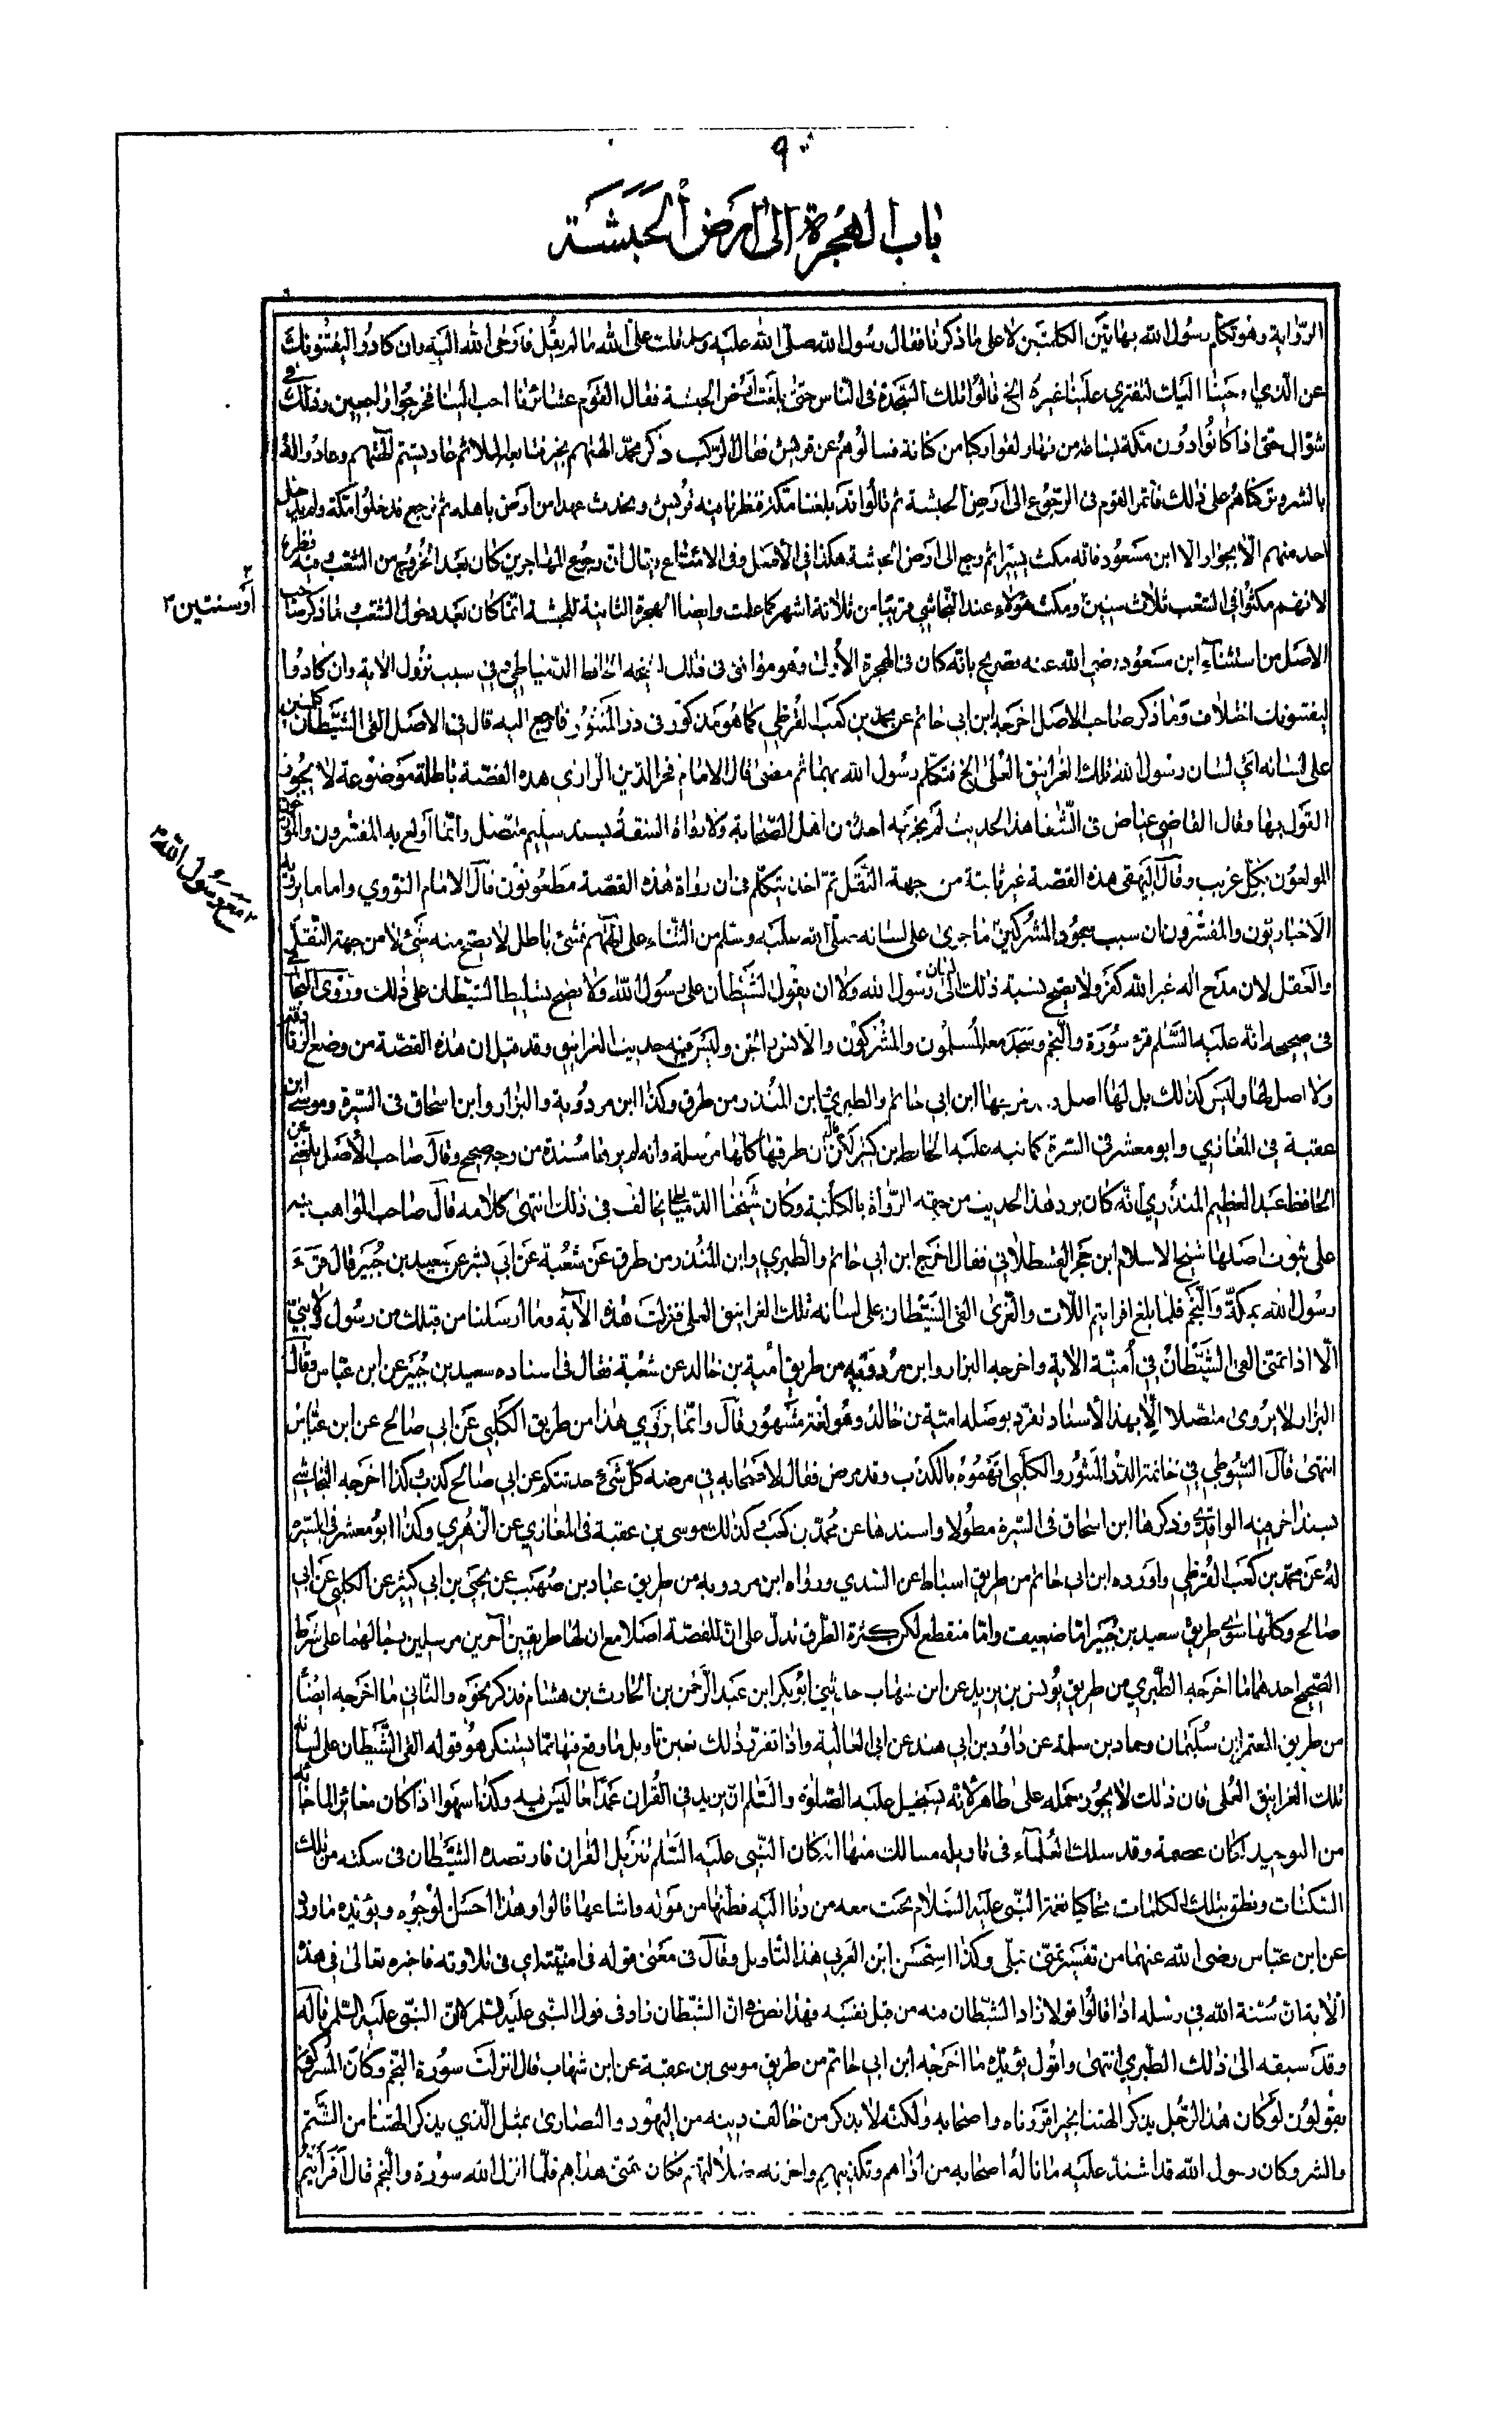 ٩
باب الهجرة الى ارض الحبشة
الرواية وهو تكلم رسول الله بهاتين الكلمتين لا على ما ذكرنا فقال رسول الله صلى الله عليه وسلم قلت على الله ما لم يقل فاوحى الله اليه وان كادوا ليفتنونك
عن الذي اوحينا اليك لتفتري علينا غيره الخ قالوا تلك السجدة في الناس حتى بلغت ارض الحبشة فقال القوم عشائرنا احب الينا فخرجوا راجعين وذلك في
شوال حتى اذا كانوا دون مكة بساعة من نهار لقوا ركبا من كنانة فسالوهم عن قريش فقال الركب ذكر محمد الهتهم بخير فتابعه الملا ثم عاد يشتم الهتهم وعادوا له
بالشر وتركناهم على ذلك فائتمر القوم في الرجوع الى ارض الحبشة ثم قالوا قد بلغنا مكة فنظر ما فيه قريش ويحدث عهدا من اراد باهله ثم نرجع فدخلوا مكة ولم يدخل
احد منهم الا بجوار الا ابن مسعود فانه مكث يسيرا ثم رجع الى ارض الحبشة هكذا في الاصل وفي الامتاع يقال ان رجوع المهاجرين كان بعد الخروج من الشعب فيه نظر
لانهم مكثوا في الشعب ثلاث سنين ومكث هؤلاء عند النجاشي قريبا من ثلاثة اشهر كما علمت وايضا الهجرة الثانية للحبشة انما كان بعد دخول الشعب ما ذكر صاحب
او سنتين
الاصل من استثناء ابن مسعود رضي الله عنه تصريح بانه كان في الهجرة الاولى وهو موافق في ذلك لشيخه الحافظ الدمياطي في سبب نزول الاية وان كادوا
ليفتنونك اختلاف وما ذكر صاحب الاصل اخرجه ابن ابي حاتم عن محمد بن كعب القرظي كما هو مذكور في در المنثور فراجع اليه قال في الاصل القى الشيطان كلمتين
على لسانه اي لسان رسول الله تلك الغرانيق العلى الخ فتكلم رسول الله بهما ثم مضى قال الامام فخر الدين الرازي هذه القصة باطلة موضوعة لا يجوز
القول بها وقال القاضي عياض في الشفا هذا الحديث لم يخرجه احد من اهل الصحابة ولا رواه الثقة بسند سليم متصل وانما اولع به المفسرون والمؤرخون
المولعون بكل غريب وقال البيهقي هذه القصة غير ثابتة من جهة النقل ثم اخذ يتكلم في ان رواة هذه القصة مطعونون قال الامام النووي واما ما يرويه
الاخباريون والمفسرون ان سبب سجود المشركين ما جرى على لسانه صلى الله عليه وسلم من الثناء على الهتهم فشئ باطل لا يصح منه شئ لا من جهة النقل
مع رسول الله
والعقل لان مدح اله غير الله كفر ولا يصح نسبة ذلك الى لسان رسول الله ولا ان يقول الشيطان على رسول الله ولا يصح تسليط الشيطان على ذلك وروى البخاري
في صحيحه انه عليه السلم قرء سورة والنجم وسجد معه المسلمون والمشركون والانس والجن وليس فيه حديث الغرانيق وقد قيل ان هذه القصة من وضع الزنادقة
ولا اصل لها وليس كذلك بل لها اصل خرجها ابن ابي حاتم والطبري وابن المنذر من طرق وكذا ابن مردويه والبزار وابن اسحاق في السيرة وموسى ابن
عقبة في المغازي وابو معشر في السيرة كما نبه عليه الحافظ بن كثير لكن قال ان طرقها كلها مرسلة وانه لم يرها مسندة من وجه صحيح وقال صاحب الاصل بلغني عن
الحافظ عبد العظيم المنذري انه كان يرد هذا الحديث من جهة الرواة بالكلية وكان شيخنا الدمياطي يخالف في ذلك انتهى كلامه قال صاحب المواهب نبه
على ثبوت اصلها شيخ الاسلام ابن حجر القسطلاني فقال اخرج ابن ابي حاتم والطبري وابن المنذر من طرق عن شعبة عن ابي بشر عن سعيد بن جبير قال قرء
رسول الله بمكة والنجم فلما بلغ افرايتم اللات والعزى القى الشيطان على لسانه تلك الغرانيق العلى فنزلت هذه الآية وما ارسلنا من قبلك من رسول ولا نبي
الا اذا تمنى القى الشيطان في امنيته الاية واخرجه البزار وابن مردويه من طريق امية بن خالد عن شعبة فقال في اسناده سعيد بن جبير عن ابن عباس وقال
البزار لا يروى متصلا الا بهذا الاسناد تفرد بوصله امية بن خالد وهو ثقة مشهور قال وانما يروي هذا من طريق الكلبي عن ابي صالح عن ابن عباس
انتهى قال السيوطي في خاتمة الدر المنثور والكلبي اتهموه بالكذب وقد مرض فقال لاصحابه في مرضه كل شئ حدثتكم عن ابي صالح كذب وكذا اخرجه النحاس
بسند اخر فيه الواقدي وذكرها ابن اسحاق في السيرة مطولا واسندها عن محمد بن كعب وكذلك موسى بن عقبة في المغازي عن الزهري وكذا ابو معشر في السيرة
له عن محمد بن كعب القرظي واورده ابن ابي حاتم من طريق اسباط عن السدي ورواه ابن مردويه من طريق عباد بن صهيب عن يحيى بن ابي كثير عن الكلبي عن ابي
صالح وكلها سوى طريق سعيد بن جبير اما ضعيف واما منقطع لكن كثرة الطرق تدل على ان للقصة اصلا مع ان لها طريقين آخرين مرسلين رجالهما على شرط
الصحيح احدهما ما اخرجه الطبري من طريق يونس بن يزيد عن ابن شهاب حدثني ابو بكر ابن عبد الرحمن بن الحارث بن هشام فذكر نحوه والثاني ما اخرجه ايضا
من طريق المعتمر ابن سليمان وحماد بن سلمة عن داود بن ابي هند عن ابي العالية واذا تقرر ذلك تعين تاويل ما وقع فيها مما يستنكر هو قوله القى الشيطان على لسانه
تلك الغرانيق العلى فان ذلك لا يجوز حمله على ظاهره لانه يستحيل عليه الصلوة والسلم ان يزيد في القرآن عمدا ما ليس فيه وكذا سهوا اذا كان مغاير لما جاء به
من التوحيد لمكان عصمة وقد سلك العلماء في تاويله مسالك منها انه كان النبي عليه السلم تنزيل القران فارتصده الشيطان في سكتة من تلك
السكتات ونطق بتلك الكلمات محاكيا نغمة النبي عليه السلام بحيث سمعه من دنا اليه فظنها من قوله واشاعها قالوا وهذا احسن الوجوه ويؤيده ما ورد
عن ابن عباس رضى الله عنهما من تفسير تمنى بتلى وكذا استحسن ابن العربي هذا التاويل وقال في معنى قوله في امنيته اي في تلاوته فاخبره تعالى في هذه
الاية ان سنة الله في رسله اذا قالوا قولا زاد الشيطان منه من قبل نفسه فهذا نص في ان الشيطان زاد في قول النبي عليه السلم لا ان النبي عليه السلم قاله
وقد سبقه الى ذلك الطبري انتهى واقول يؤيده ما اخرجه ابن ابي حاتم من طريق موسى بن عقبة عن ابن شهاب قال انزلت سورة النجم وكان المشركون
يقولون لو كان هذا الرجل يذكر الهتنا بخير اقررناه واصحابه ولكنه لا يذكر من خالف دينه من اليهود والنصارى بمثل الذي يذكر الهتنا من الشتم
والشر وكان رسول الله قد اشتد عليه ما ناله اصحابه من اذاهم وتكذيبهم واحزنه ضلالتهم فكان يتمنى هداهم فلما انزل الله سورة والنجم قال افرأيتم